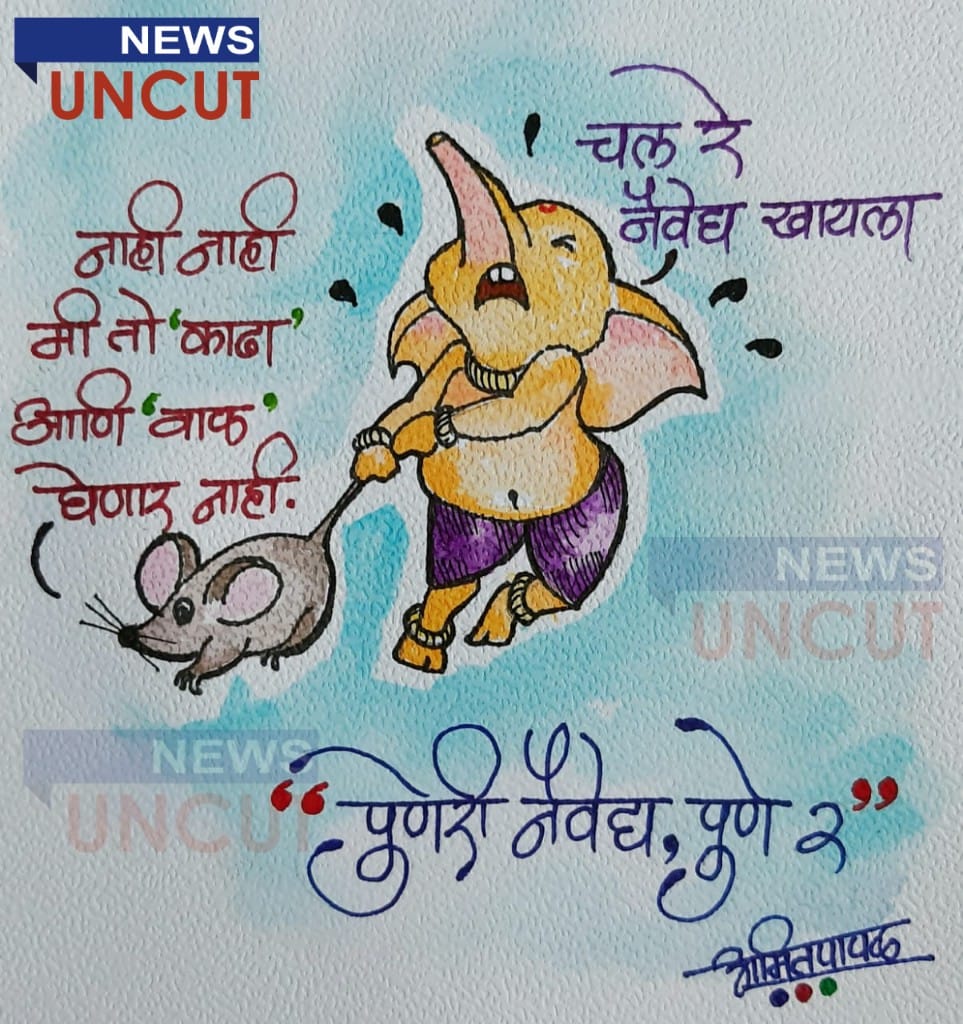 NEWS
UNCUT
चल रे
नैवेद्य खायला
नाही नाही
मी तो 'काढा'
आणि 'वाफ'
घेणार नाही.
NEWS
UNCUT
NEWS
UNCUT
“पुणेरी नैवेद्य, पुणे २”